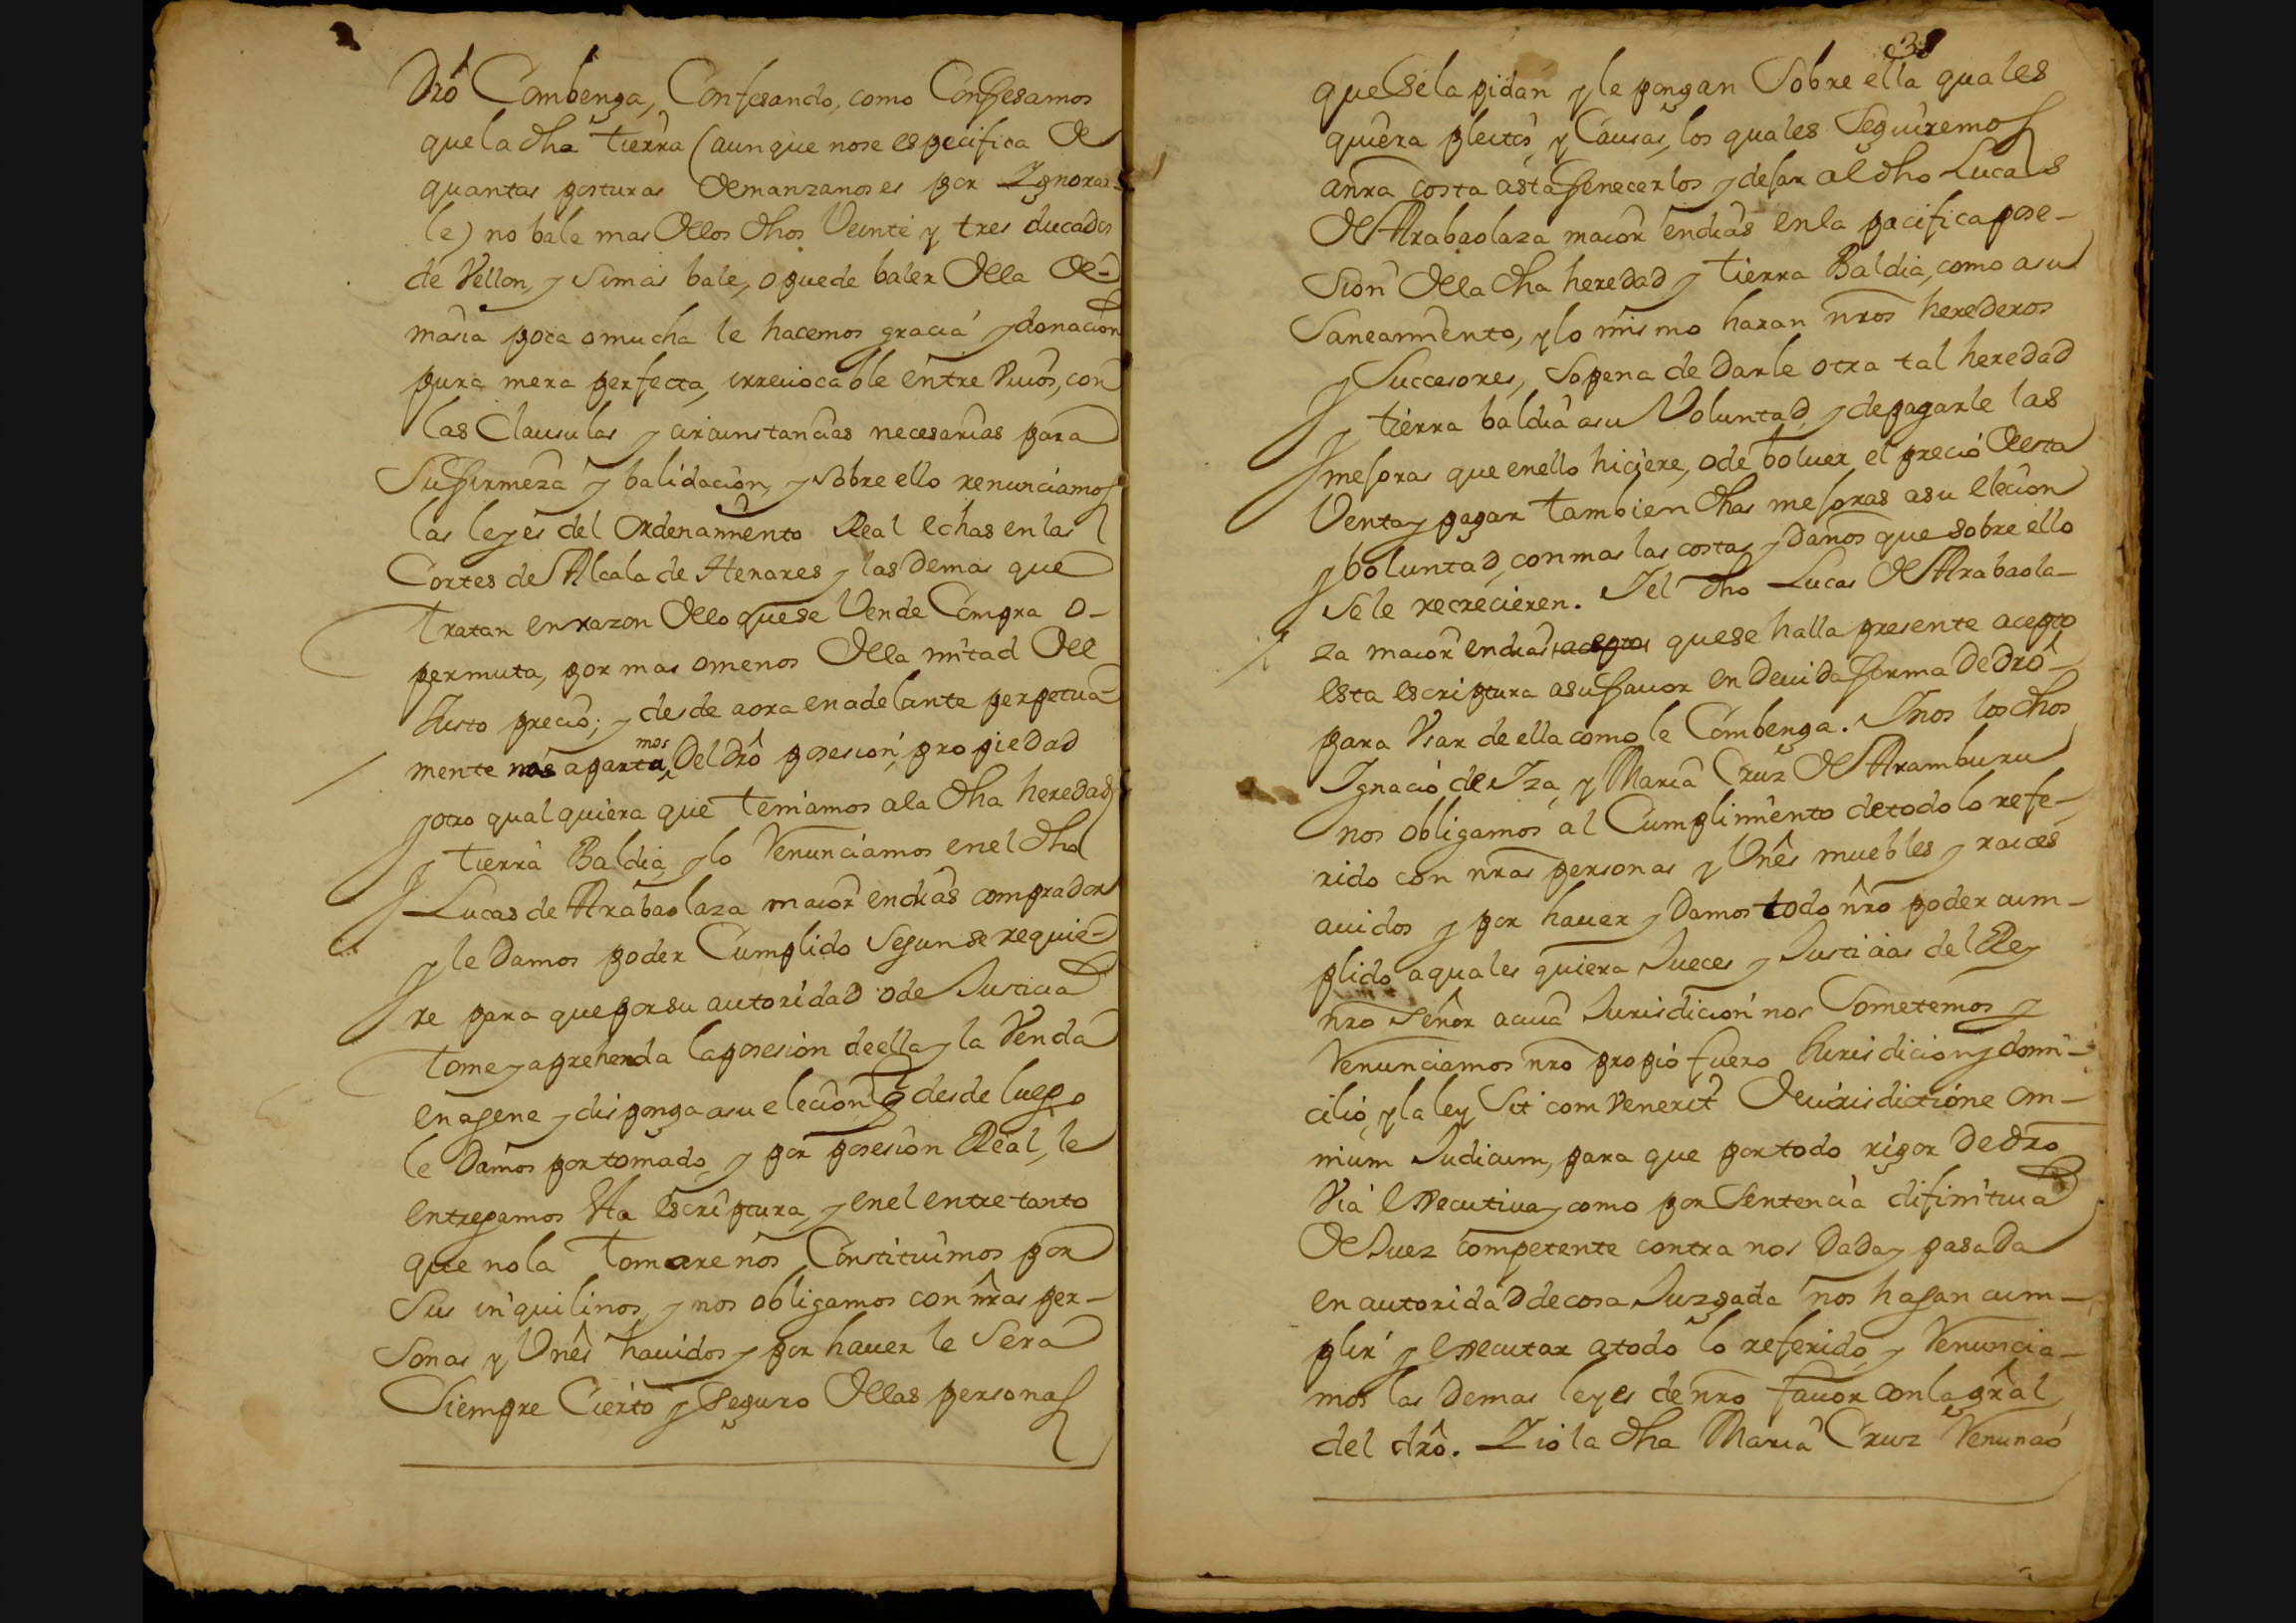 dró Combenga, Confesando, como Confesamos
que la dha tierra (aunque nose especifica de
quantas posturas demanzanos es por Ignorar
le) no bale mas dellos dhos Veinte y tres ducados
de Vellon, y simas bale, o puede baler della de-
masia poca o mucha le hacemos gracia y donacion
pura mera perfecta, irreuocable entre Viuos, con
las Clausulas y circunstancias necesarias para
su firmeza y balidacion, y sobre ello renunciamos
las leyes del ordenamiento Real echas en las
Cortes de Alcala de Henares y las demas que
tratan en razon dello que se Vende Compra o-
permuta, por mas omenos della mitad del
Justo precio; y desde aora en adelante perpetua
mente nos apartamos del dró posesion, propiedad
y otro qual quiera que teniamos ala dha heredad,
y tierra Baldia, y lo Renunciamos en el dho
Lucas de Arabaolaza maior en dias comprador
y le damos poder Cumplido segun se requie-
re para que por su autoridad o de Justicia
tome y aprehenda la posesion de ella y la Venda
enagene y disponga asu elecion q desde luego
le damos por tomado, y por posesion Real, le
entregamos Sta escriptura, y en el entre tanto
que no la tomare nos Constituimos por
sus inquilinos, y nos obligamos con nras per-
sonas y Vnes hauidos y por hauer le sera
Siempre Cierto y seguro dellas personas
38
que se la pidan y le pongan sobre ella quales
quiera pleitos, y Causas, los quales seguiremos
anra costa asta fenecerlos y dejar al dho Lucas
de Arabaolaza maior en dias en la pacifica pose-
sion della dha heredad y tierra Baldia, como asu
saneamiento, y lo mismo haran nros herederos
y Succesores, sopena de darle otra tal heredad
y tierra baldia asu Voluntad, y de pagarle las
mejoras que en ello hiciere, o de boluer el precio desta
Venta y pagar tambien dhas mejoras asu elecion
y boluntad, con mas las costas y daños que sobre ello
se le recrecieren. Iel dho Lucas de Arabaola-
za maior en dias acepto que se halla presente acepto
esta escriptura asu fauor en deuida forma de dró
para Vsar de ella como le Combenga. I nos los dhos
Ignacio de Iza, y Maria Cruz de Aramburu
nos obligamos al Cumplimiento de todo lo refe-
rido con nras personas y Vnes muebles y raices
auidos y por hauer y damos todo nro poder cum-
plido aquales quiera Jueces y Justicias del Rey
nro señor acuia Jurisdicion nos sometemos y
Renunciamos nro propio fuero Jurisdicion y domi-
cilio, y la ley Sit com Venerit de iurisdictione om-
nium Judicum, para que por todo rigor de dro
Via executiua y como por sentencia difinitiua
de Juez competente contra nos dada y pasada
en autoridad de cosa Juzgada nos hagan cum-
plir y executar atodo lo referido, y Renuncia-
mos las demas leyes de nro fauor con la gral
del dró. I io la dha Maria Cruz Renuncio